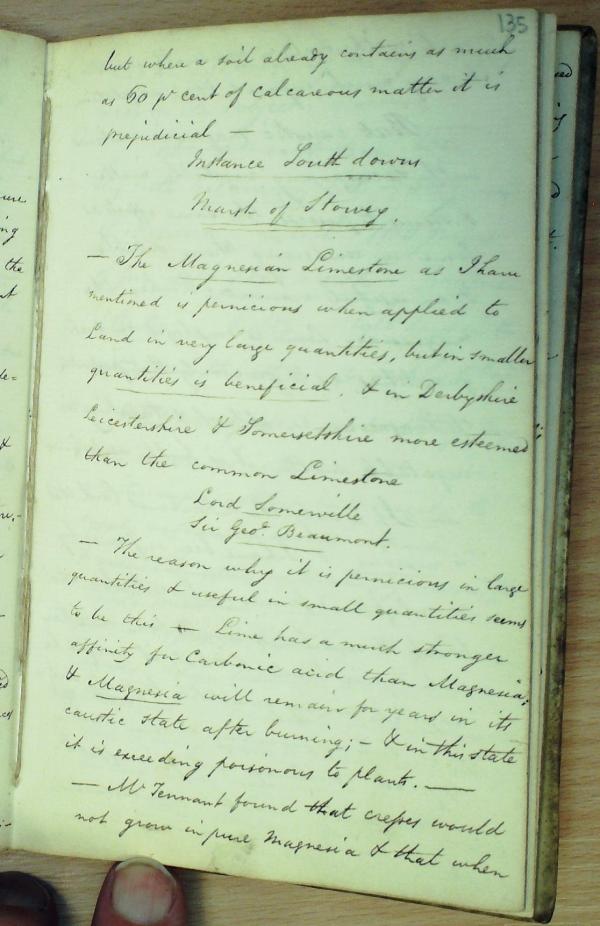 135
but where a soil already contains as much
as 60 pr cent of calcareous matter it is
prejudicial —
Instance South downs
Marsh of Stowey.
— The Magnesian Limestone as I have
mentioned is pernicious when applied to
Land in very large quantities, but in smaller
quantities is beneficial. & in Derbyshire
Leicestershire & Somersetshire more esteemed
than the common Limestone
Lord Somerville
Sir Geo. Beaumont.
— The reason why it is pernicious in large
quantities & useful in small quantities seems
to be this — Lime has a much stronger
affinity for Carbonic acid than Magnesia;
& Magnesia will remain for years in its
caustic state after burning; — & in this state
it is exceeding poisonous to plants. —
— Mr Tennant found that cresses would
not grow in pure Magnesia & that when